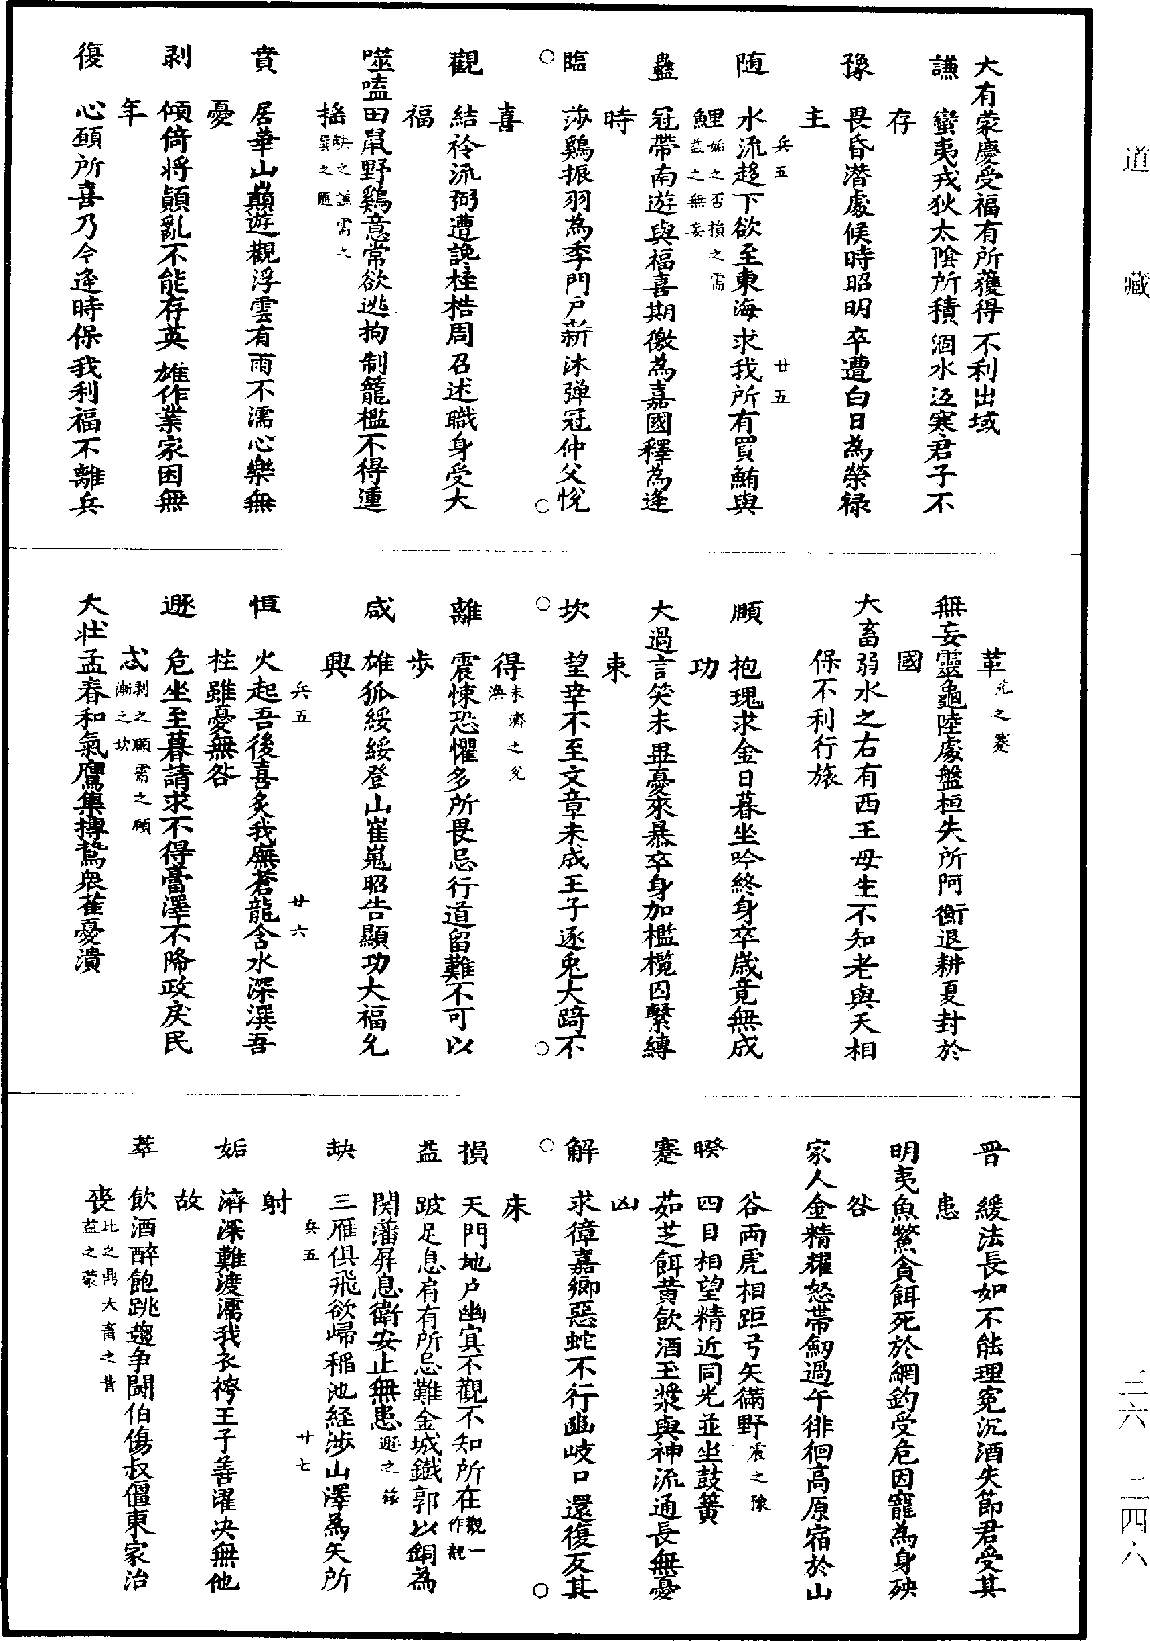 道藏
三六 二四八
大有蒙慶受福有所獲得不利出域
謙 蠻夷戎狄太陰所積涸水沍寒君子不
存
豫 畏昏潛處候時昭明卒遭白日為榮祿
主
兵五 廿五
随 水流趍下欲至東海求我所有買鮪與
鯉姤之否損之需益之無妄
蠱 冠帶南遊與福喜期徼為嘉國釋為逢
時
臨 莎鷄振羽為季門戶新沐弹冠仲父悅
喜
觀 結衿流粥遭讒桎梏周召述職身受大
福
噬嗑田鼠野鷄意常欲逃拘制籠檻不得運
搖
賁 居華山巔遊觀浮雲有雨不濡心樂無
憂
剥 傾倚將顛亂不能存英雄作業家困無
年
復 心願所喜乃今逢時保我利福不離兵
革兊之蹇
無妄靈龜陸處盤桓失所阿衡退耕夏封於
國
大畜弱水之右有西王母生不知老與天相
保不利行旅
頤 抱瑰求金日暮坐吟終身卒歲竟無成
功
大過言笑未畢憂來暴卒身加檻欖囚繫縛
束
坎 望幸不至文章未成王子逐兎大踦不
得未濟之兊渙
離 震悚恐懼多所畏忌行道留難不可以
步
咸 雄狐綏綏登山崔嵬昭告顯功大福允
興
兵五 廿六
恒 火起吾後喜炙我廡蒼龍含水深潠吾
柱雖憂無咎
遯 危坐至暮請求不得膏澤不降政戾民
忒剥之頤需之頤漸之坎
大壯孟春和氣鷹隼搏鷙眾雀憂潰
晋 緩法長奸不能理寃沉酒失節君受其
患
明夷魚鱉貪餌死於網釣受危因寵為身殃
咎
家人金精耀怒帶劒過午徘徊高原宿於山
谷兩虎相距弓矢滿野
睽 四目相望精近同光並坐鼓簧
蹇 茹芝餌黄飲酒玉漿與神流通長無憂
凶
解 求獐嘉鄉惡蛇不行幽岐口還復反其
床
損 天門地户幽冥不觀不知所在觀一作覩
益 跛足息肩有所忌難金城鐵郭以銅為
関藩屏息衛安止無患
兵五 廿七
缺 三雁俱飛欲歸稻池経涉山澤為矢所
射
姤 濟深難渡濡我衣袴王子善濯决無他
故
萃 飲酒醉飽跳趨爭鬪伯傷叔僵東家治
喪比之鼎大畜之賁益之蒙